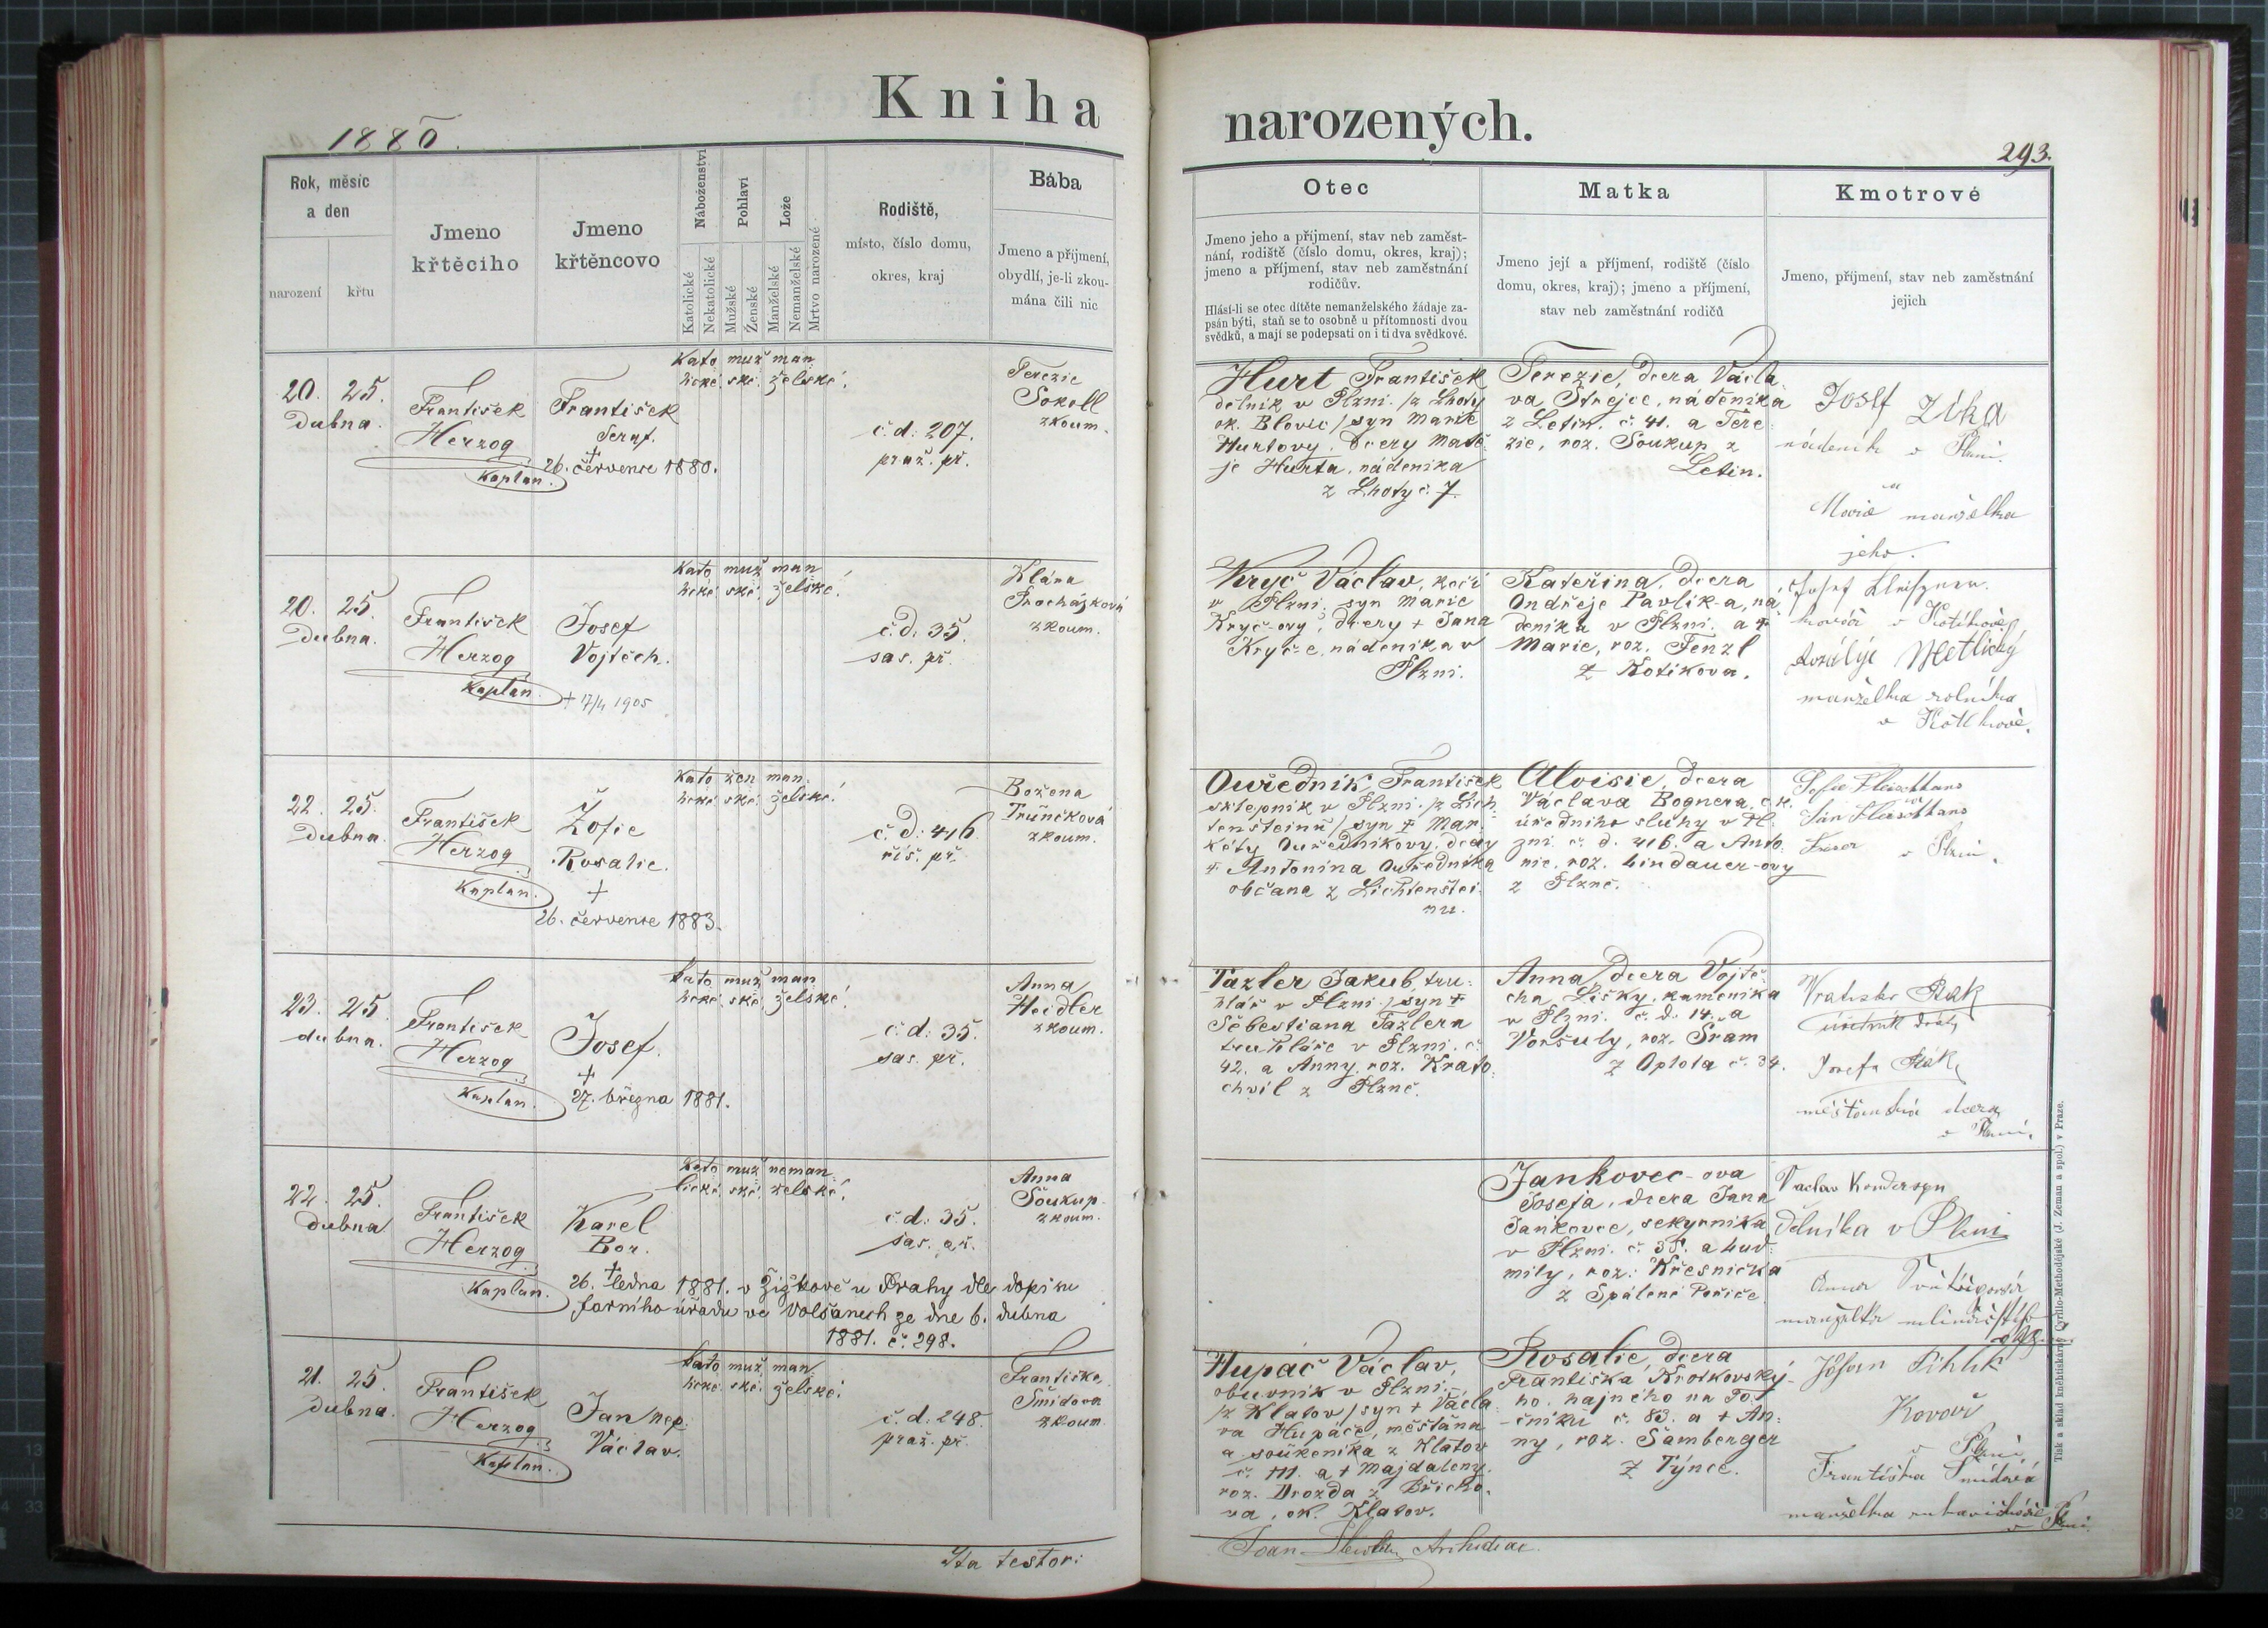 Kniha
narozených.
1880.
293.
Rok, měsíc
a den
narození
křtu
Jmeno
křtěcího
Jmeno
křtěncovo
Náboženství
Katolické
Nekatolické
Pohlaví
Mužské
Ženské
Lože
Manželské
Nemanželské
Mrtvo narozené
Rodiště,
místo, číslo domu,
okres, kraj
Bába
Jmeno a příjmení,
obydlí, je-li zkou-
mána čili nic
Otec
Jmeno jeho a příjmení, stav neb zaměst-
nání, rodiště (číslo domu, okres, kraj);
jmeno a příjmení, stav neb zaměstnání
rodičův.
Hlásí-li se otec dítěte nemanželského žádaje za-
psán býti, staň se to osobně u přítomnosti dvou
svědků, a mají se podepsati on i ti dva svědkové.
Matka
Jmeno její a příjmení, rodiště (číslo
domu, okres, kraj); jmeno a příjmení,
stav neb zaměstnání rodičů
Kmotrové
Jmeno, příjmení, stav neb zaměstnání
jejich
20. 25.
Dubna.
František
Herzog
Kaplan.
František
Seraf.
†
26. července 1880.
Kato muž man
lické. ské. želské.
č. d: 207.
praž. př.
Terezie
Sokoll
zkoum.
Hurt František
dělník v Plzni. /z Lhoty
ok. Blovic/ syn Marie
Hurtovy, dcery Matě-
je Hurta, nádeníka
z Lhoty č. 7.
Terezie, dcera Václa-
va Strejce, nádeníka
z Letin. č. 41. a Tere-
zie, roz. Soukup z
Letin.
Josef Zika
nádeník v Plzni.
a
Marie manželka
jeho.
20. 25.
Dubna.
František
Herzog
Kaplan.
Josef
Vojtěch.
† 17/4 1905
Kato muž man
lické. ské. želské.
č. d: 35.
sas. př.
Klára
Procházková
zkoum.
Kryč Václav, kočí
v Plzni. syn Marie
Kryč-ovy, dcery † Jana
Kryč-e, nádeníka v
Plzni.
Kateřina, dcera
Ondřeje Pavlík-a, ná-
deníka v Plzni. a †
Marie, roz. Fenzl
z Kotíkova.
Josef
kovář v Kotíkově
Rozálije Metlický
manželka rolníka
v Kotíkově.
22. 25.
Dubna.
František
Herzog
Kaplan.
Žofie
Rosalie.
†
26. července 1883.
Kato žen man
lické. ské. želské.
č. d: 416.
říš. př.
Božena
Truněčková
zkoum.
Ouředník, František
sklepník v Plzni. /z Lich-
tenšteinu/ syn † Mar-
kéty Ouředníkovy, dcery
† Antonína Ouředníka
občana z Lichtenštei-
nu.
Aloisie, dcera
Václava Bognera, c. k.
úředního sluhy v Pl-
zni. č. d. 416. a Anto-
nie, roz. Lindauer-ovy
z Plzně.
v Plzni.
23. 25.
dubna.
František
Herzog
Kaplan.
Josef.
†
27. března 1881.
kato muž man
lické. ské. želské.
č. d: 35.
sas. př.
Anna
Heidler
zkoum.
Tazler Jakub, tru-
hlář v Plzni./ syn †
Sebestiana Tazlera
truhláře v Plzni. č.
42. a Anny, roz. Krato-
chvíl z Plzně.
Anna, dcera Vojtě-
cha Lišky, kameníka
v Plzni. č. d. 14. a
Voršuly, roz. Šram
z Oplota č. 34.
Josefa
měšťanská dcera
v Plzni.
22. 25.
Dubna
František
Herzog
Kaplan.
Karel
Bor.
†
26. ledna 1881. v Žižkově u Prahy dle dopisu
farního úřadu ve Volšanech ze dne 6. dubna
1881. č. 298.
kato muž neman
lické. ské. želské.
č. d: 35.
sas. př.
Anna
Soukup
zkoum.
Jankovec-ova
Josefa, dcera Jana
Jankovce, sekyrníka
v Plzni. č. 35. a Lud-
mily, roz. Křesnička
z Spálené Poříče.
Václav
dělníka v Plzni
Anna
manželka
21. 25.
Dubna.
František
Herzog
Kaplan.
Jan Nep.
Václav.
kato muž man
lické. ské. želské.
č. d: 248.
praž. př.
Františka
Šmídova
zkoum.
Hupač Václav,
obuvník v Plzni.
/z Klatov/ syn † Václa-
va Hupače, měšťana
a soukeníka z Klatov
č. 111. a † Majdaleny,
roz. Drozda z Břicho-
va, ok. Klatov.
Rosalie, dcera
Františka Krotkovský-
ho, hajného na To-
čníku č. 83. a † An-
ny, roz. Šamberger
z Týnce.
Kovář
v Plzni
Františka Šmídová
manželka rukavičkáře
v Plzni.
Ita testor:
Joan. Archidiac.
Tisk a sklad kněhtiskárny Cyrillo-Methodějské (J. Zeman a spol.) v Praze.